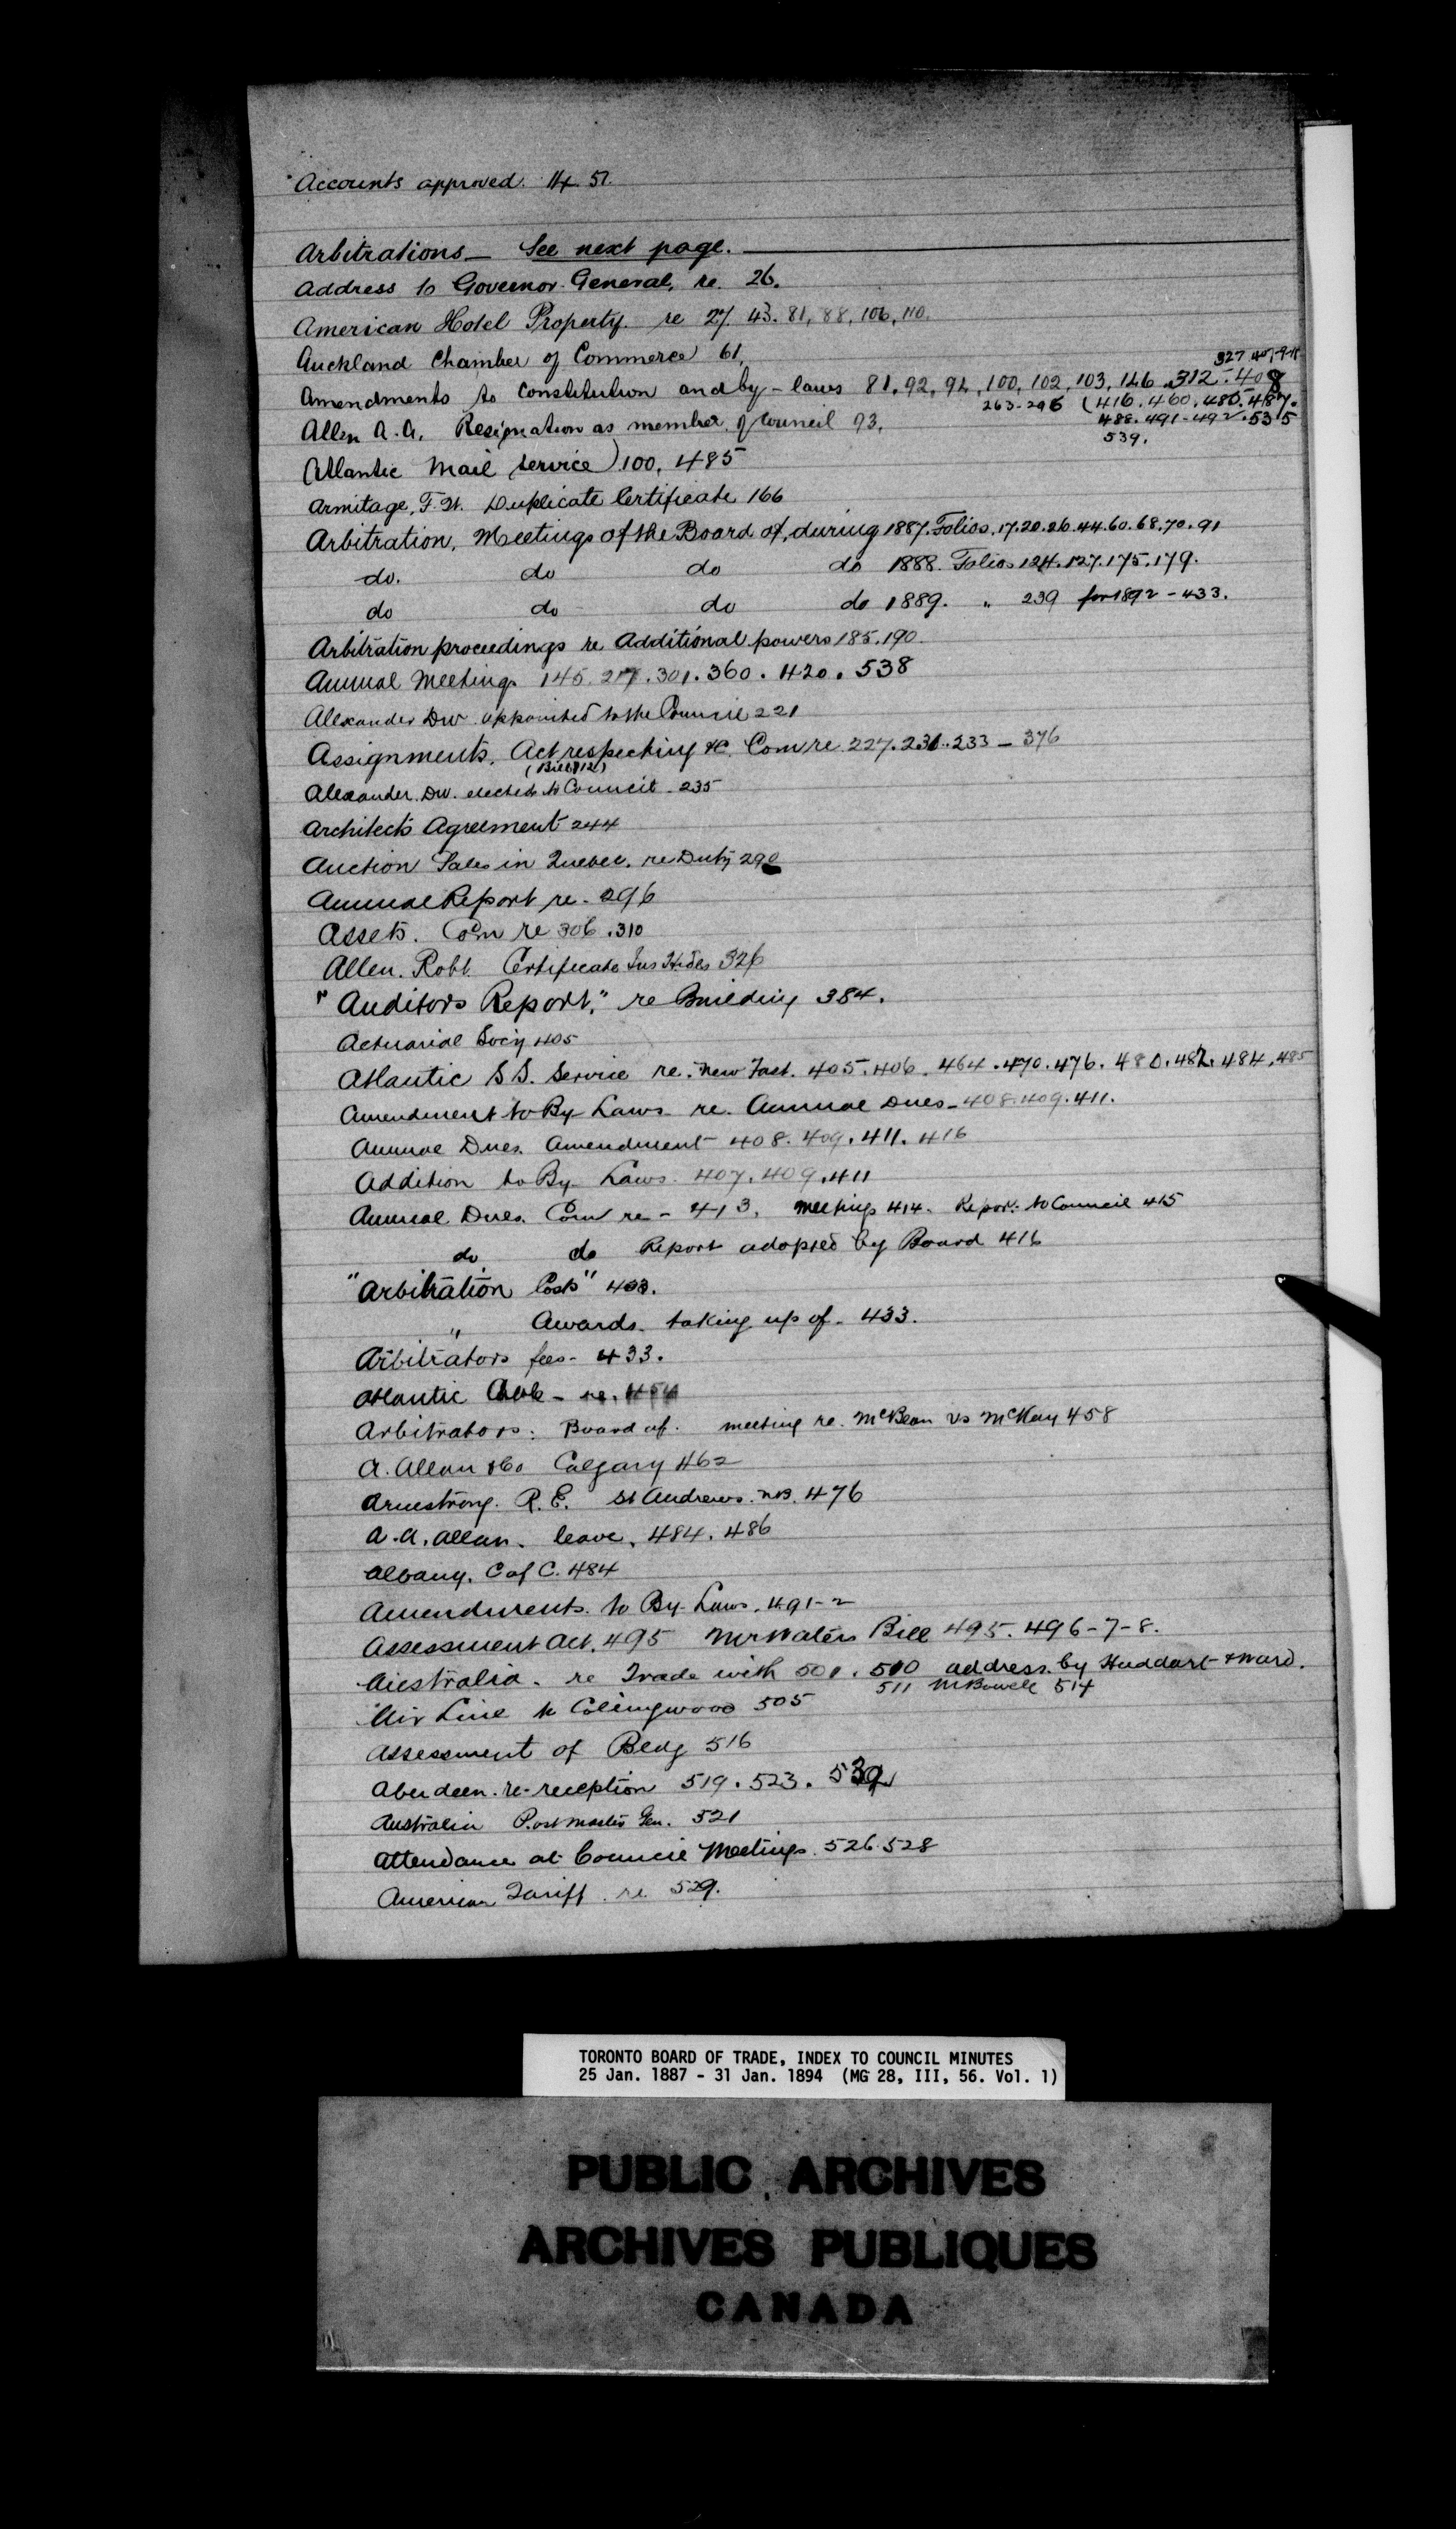 Accounts approved. 14. 51.
Arbitrations — See next page.
Address to Governor General, re. 26.
American Hotel Property. re 27. 43. 81, 88, 106, 110.
Auckland Chamber of Commerce 61.
327. 407-9-11
Amendments to Constitution and by-laws 81, 92, 94, 100, 102, 103, 146. 312. 408
263-296 (416. 460. 486. 487.
Allen A. A. Resignation as member of Council 93.
488. 491-492. 535
539.
(Atlantic Mail Service) 100, 485
Armitage, F. W. Duplicate Certificate 166
Arbitration, Meetings of the Board of, during 1887. Folios. 17. 20. 26. 44. 60. 68. 70. 91
do. do do do 1888. Folios 124. 127. 175. 179.
do do do do 1889. " 239 for 1892 - 433.
Arbitration proceedings re Additional powers 185. 190.
Annual Meetings 145. 217. 301. 360. 420. 538
Alexander DW. appointed to the Council 221
Assignments, Act respecting &c. Com re 227. 231. 233 - 376
(Bill 112)
Alexander. DW. elected to Council. 235
Architects Agreement 244
Auction Sales in Quebec. re Duty 290
Annual Report re. 296
Assets. Com re 306. 310
Allen. Robt. Certificate Ins Hides 326
"Auditors Report," re Building 384.
Actuarial Socy 405
Atlantic S S. Service re. New Fast. 405. 406. 464. 470. 476. 480. 482. 484. 485
Amendment to By Laws re. Annual Dues - 408. 409. 411.
Annual Dues. Amendment 408. 409. 411. 416
Addition to By Laws. 407. 409. 411
Annual Dues. Com re - 413. meetings 414. Report to Council 415
do do Report adopted by Board 416
"Arbitration Costs" 403.
" Awards. taking up of - 433.
Arbitrators fees - 433.
Atlantic Cable - re.
Arbitrators. Board of. meeting re. McBean vs McKay 458
A. Allan & Co Calgary 462
Armstrong. R. E. St Andrews. N.B. 476
A. A. Allan. leave. 484. 486
Albany. C of C. 484
Amendments to By Laws. 491-2
Assessment Act. 495 Mr Waters Bill 495. 496-7-8.
Australia. re Trade with 501. 510 address by Huddart & Ward.
511 M Bowell 514
Air Line to Collingwood 505
Assessment of Bldg 516
Aberdeen. re-reception 519. 523. 532
Australia Postmaster Gen. 521
Attendance at Council Meetings. 526. 528
American Tariff. re 529.
TORONTO BOARD OF TRADE, INDEX TO COUNCIL MINUTES
25 Jan. 1887 - 31 Jan. 1894 (MG 28, III, 56. Vol. 1)
PUBLIC ARCHIVES
ARCHIVES PUBLIQUES
CANADA